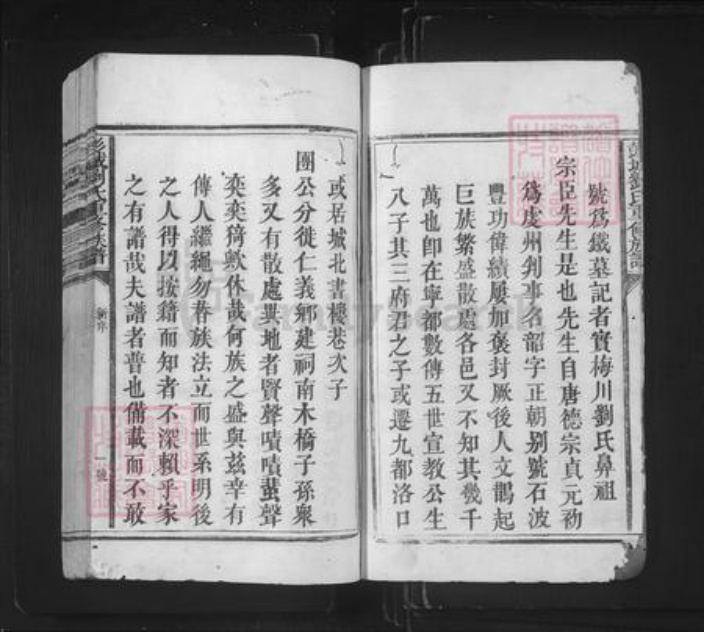 號爲鐵墓記者實梅川劉氏鼻祖
宗臣先生是也先生自唐德宗貞元初
爲虔州刺事名韶字正朝别號石波
豐功偉績屢加褒封厥後人文鵲起
巨族繁盛散處各邑又不知其幾千
萬也卽在寧都數傳五世宣教公生
八子其三府君之子或遷九都洛口
或居城北書樓巷次子
團公分徙仁義鄉建祠南木橋子孫衆
多又有散處異地者賢聲嘖嘖蜚聲
奕奕猗歟休哉何族之盛與茲幸有
傳人繼繩勿替族法立而世系明後
之人得以按籍而知者不深賴乎家
之有譜哉夫譜者普也備載而不敢
彭城劉氏重修族譜
新序
一號